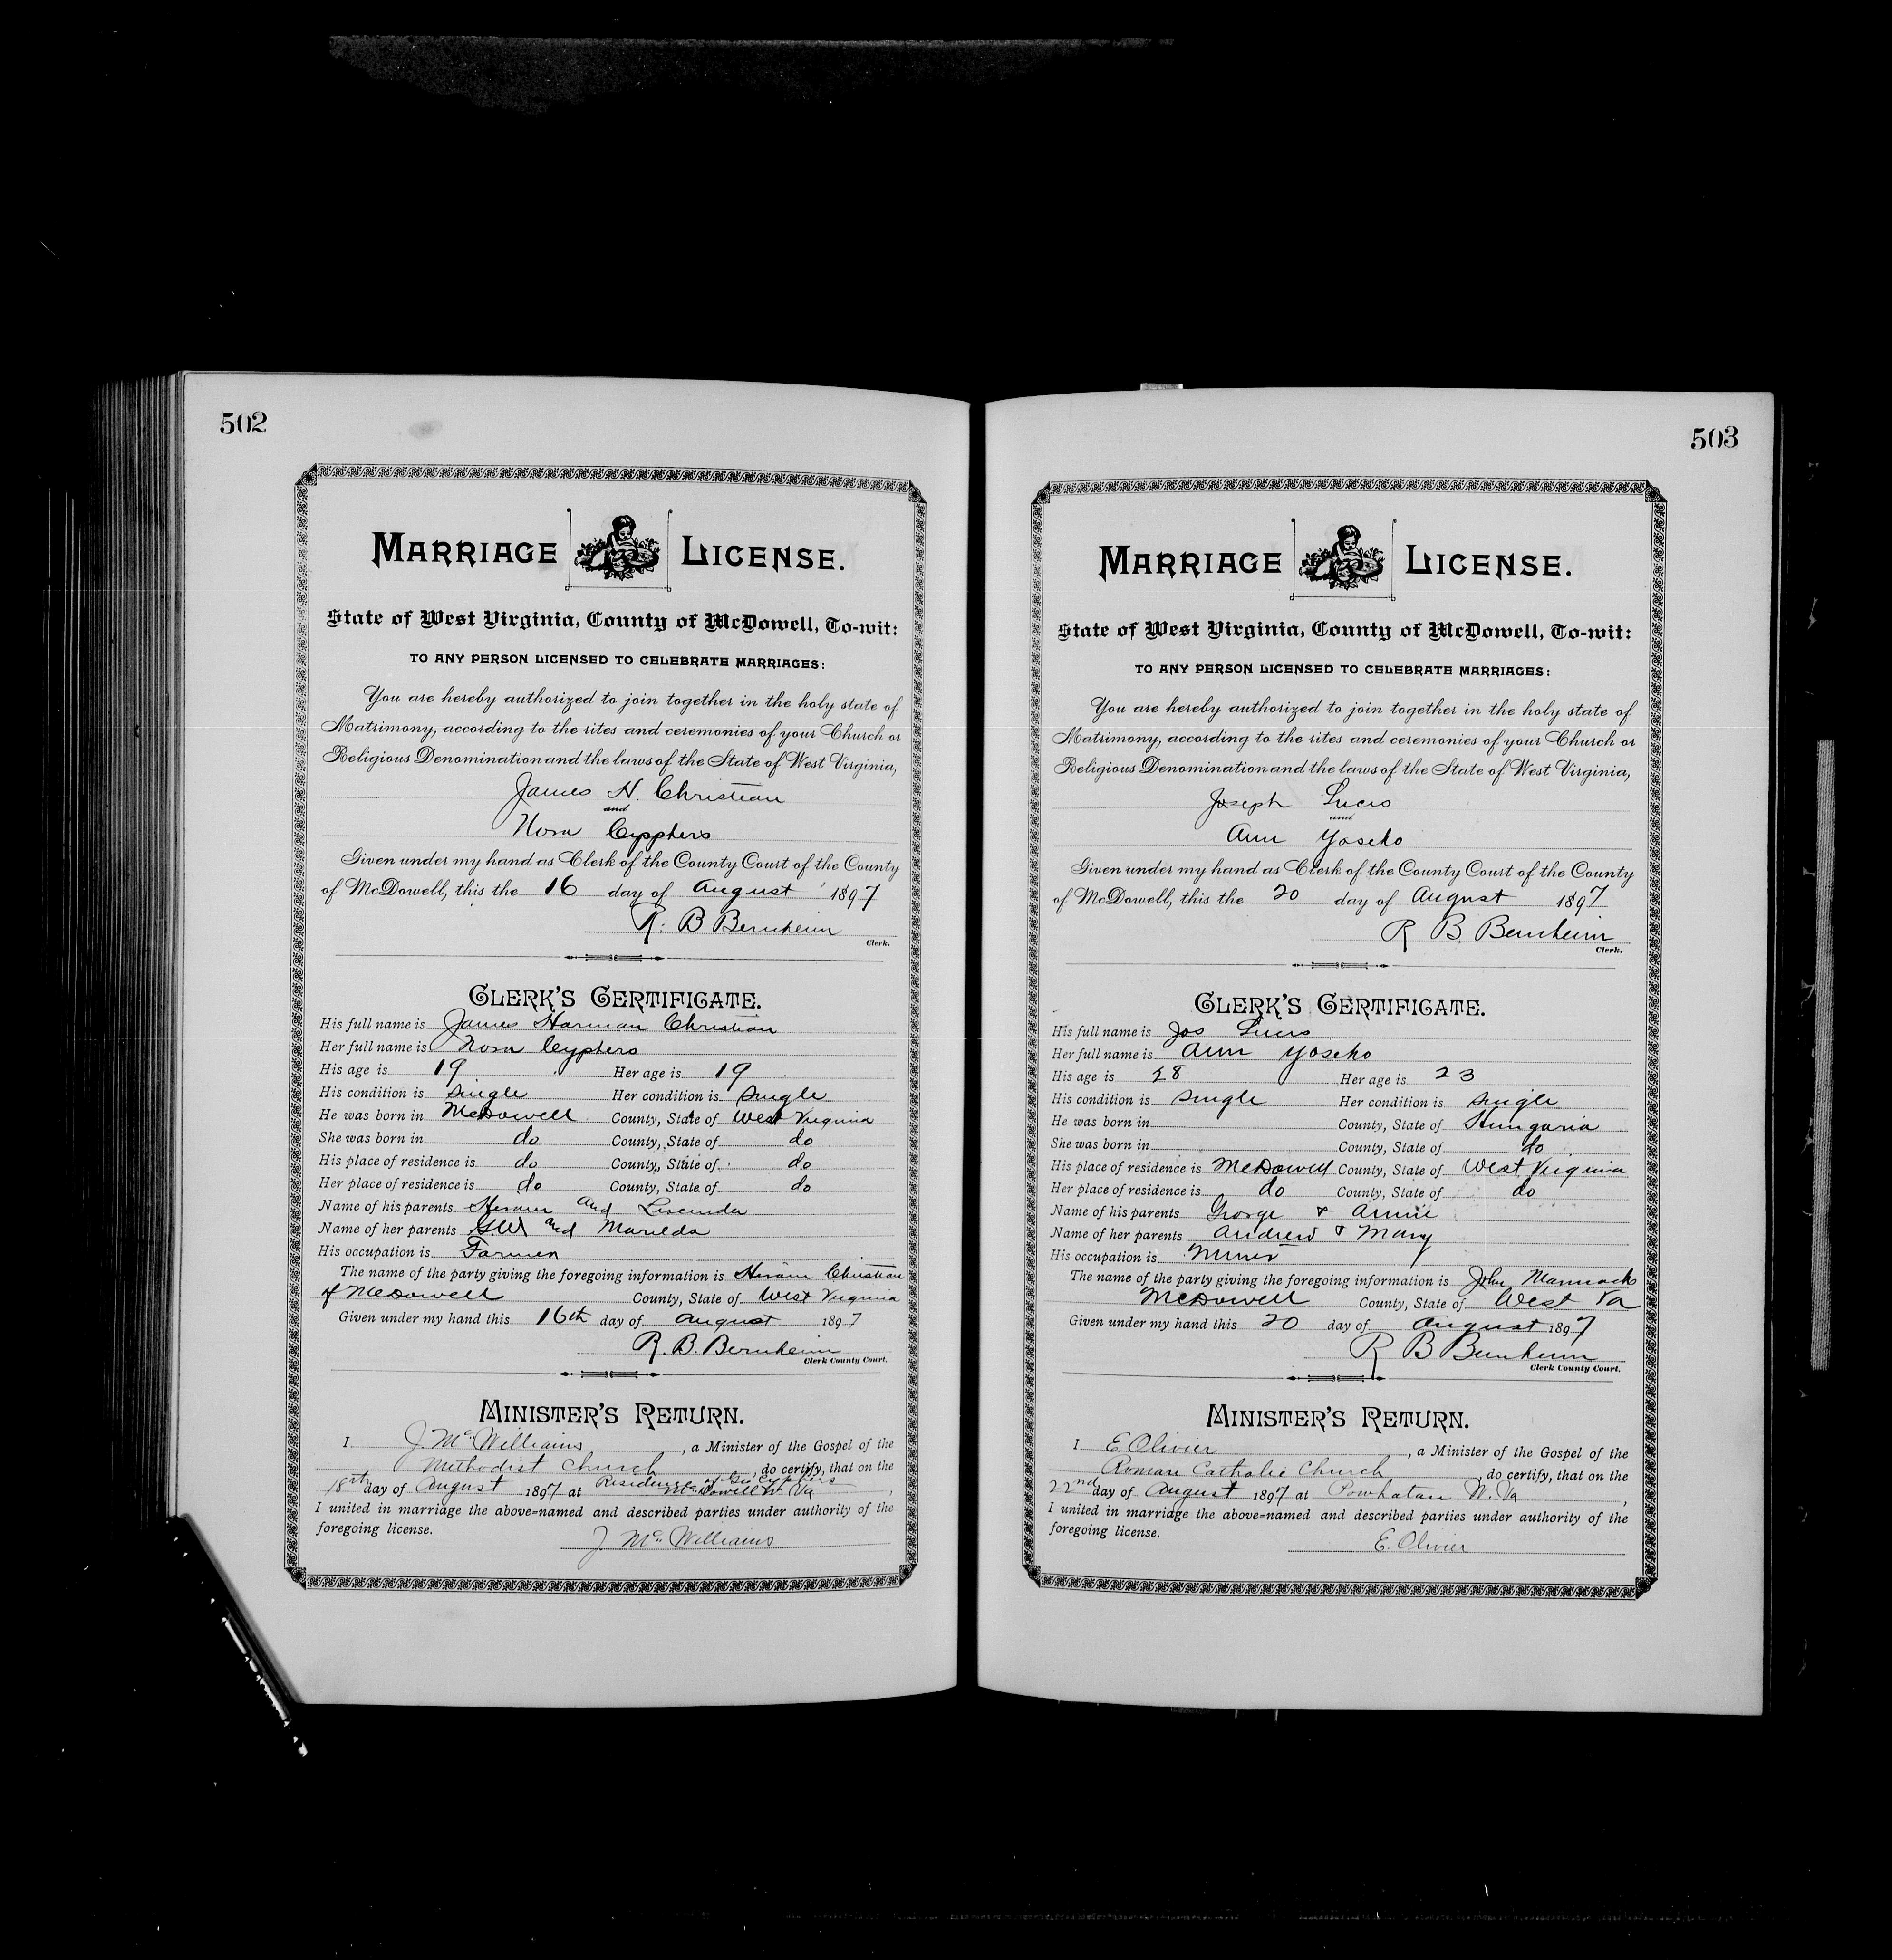 502
MARRIAGE LICENSE.
State of West Virginia, County of McDowell, To-wit:
TO ANY PERSON LICENSED TO CELEBRATE MARRIAGES:
You are hereby authorized to join together in the holy state of
Matrimony, according to the rites and ceremonies of your Church or
Religious Denomination and the laws of the State of West Virginia,
James H. Christian
and
Nora Cyphers
Given under my hand as Clerk of the County Court of the County
of McDowell, this the 16 day of August 1897
R. B Bernheim
Clerk.
CLERK'S CERTIFICATE.
His full name is James Harman Christian
Her full name is Nora Cyphers
His age is 19 Her age is 19
His condition is Single Her condition is Single
He was born in McDowell County, State of West Virginia
She was born in do County, State of do
His place of residence is do County, State of do
Her place of residence is do County, State of do
Name of his parents Hiram and Lucinda
Name of her parents G.W. and Marilda
His occupation is Farmer
The name of the party giving the foregoing information is Hiram Christian
of McDowell County, State of West Virginia
Given under my hand this 16th day of August 1897
R. B. Bernheim
Clerk County Court.
MINISTER'S RETURN.
I J. McWilliams, a Minister of the Gospel of the
Methodist Church, do certify, that on the
18th day of August 1897 at Residence of Geo Cyphers McDowell W. Va,
I united in marriage the above-named and described parties under authority of the
foregoing license.
J McWilliams
503
MARRIAGE LICENSE.
State of West Virginia, County of McDowell, To-wit:
TO ANY PERSON LICENSED TO CELEBRATE MARRIAGES:
You are hereby authorized to join together in the holy state of
Matrimony, according to the rites and ceremonies of your Church or
Religious Denomination and the laws of the State of West Virginia,
Joseph Lucis
and
Ann Yoseko
Given under my hand as Clerk of the County Court of the County
of McDowell, this the 20 day of August 1897
R B. Bernheim
Clerk.
CLERK'S CERTIFICATE.
His full name is Jos Lucis
Her full name is Ann Yoseko
His age is 28 Her age is 23
His condition is Single Her condition is Single
He was born in County, State of Hungaria
She was born in County, State of do
His place of residence is McDowell County, State of West Virginia
Her place of residence is do County, State of do
Name of his parents George & Annie
Name of her parents Andrew & Mary
His occupation is Miner
The name of the party giving the foregoing information is John
McDowell County, State of West Va
Given under my hand this 20 day of August 1897
R B Bernheim
Clerk County Court.
MINISTER'S RETURN.
I E. Olivier, a Minister of the Gospel of the
Roman Catholic Church, do certify, that on the
22nd day of August 1897 at Powhatan W. Va,
I united in marriage the above-named and described parties under authority of the
foregoing license.
E. Olivier